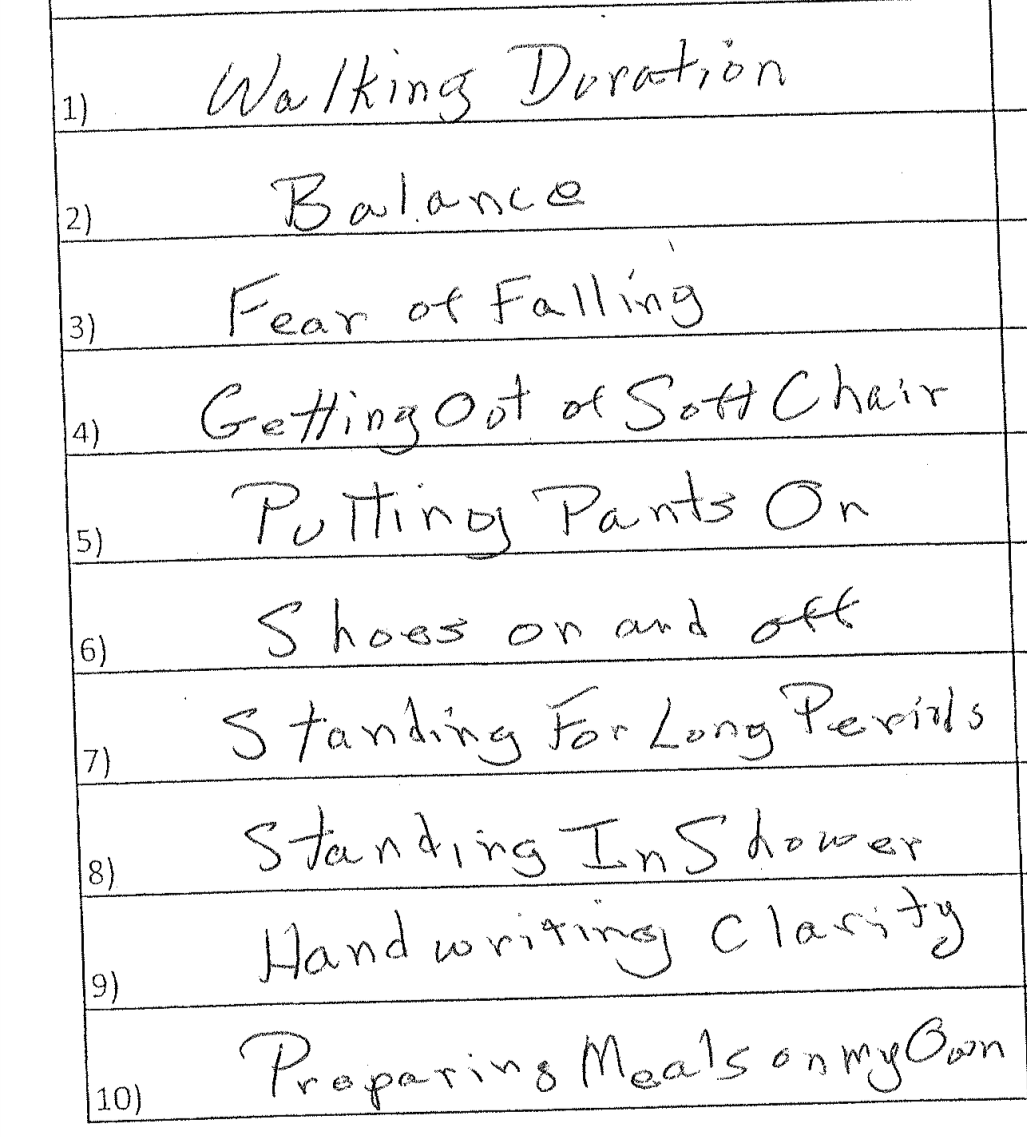 1) Walking Duration
2) Balance
3) Fear of Falling
4) Getting Out of Soft Chair
5) Putting Pants On
6) Shoes on and off
7) Standing For Long Periods
8) Standing In Shower
9) Handwriting Clarity
10) Preparing Meals on my Own